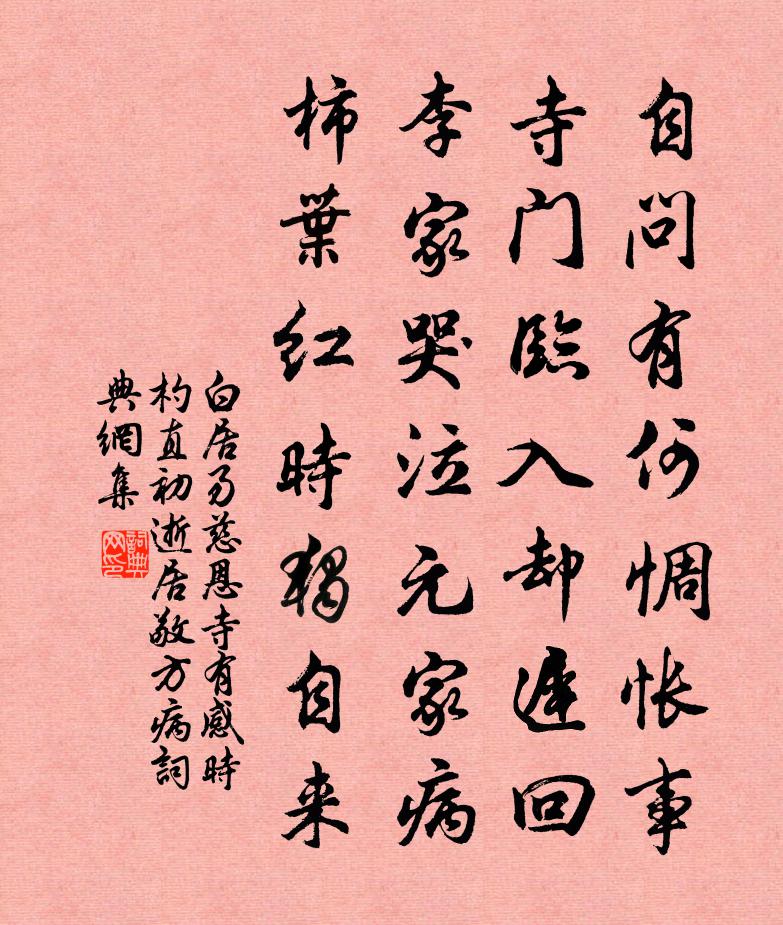 自问有何惆怅事
寺门临入却迟回
李家哭泣元家病
柿葉红時独自来
白居易慈恩寺有感時
杓直初逝居敬方病詞
典網集
詞典网印